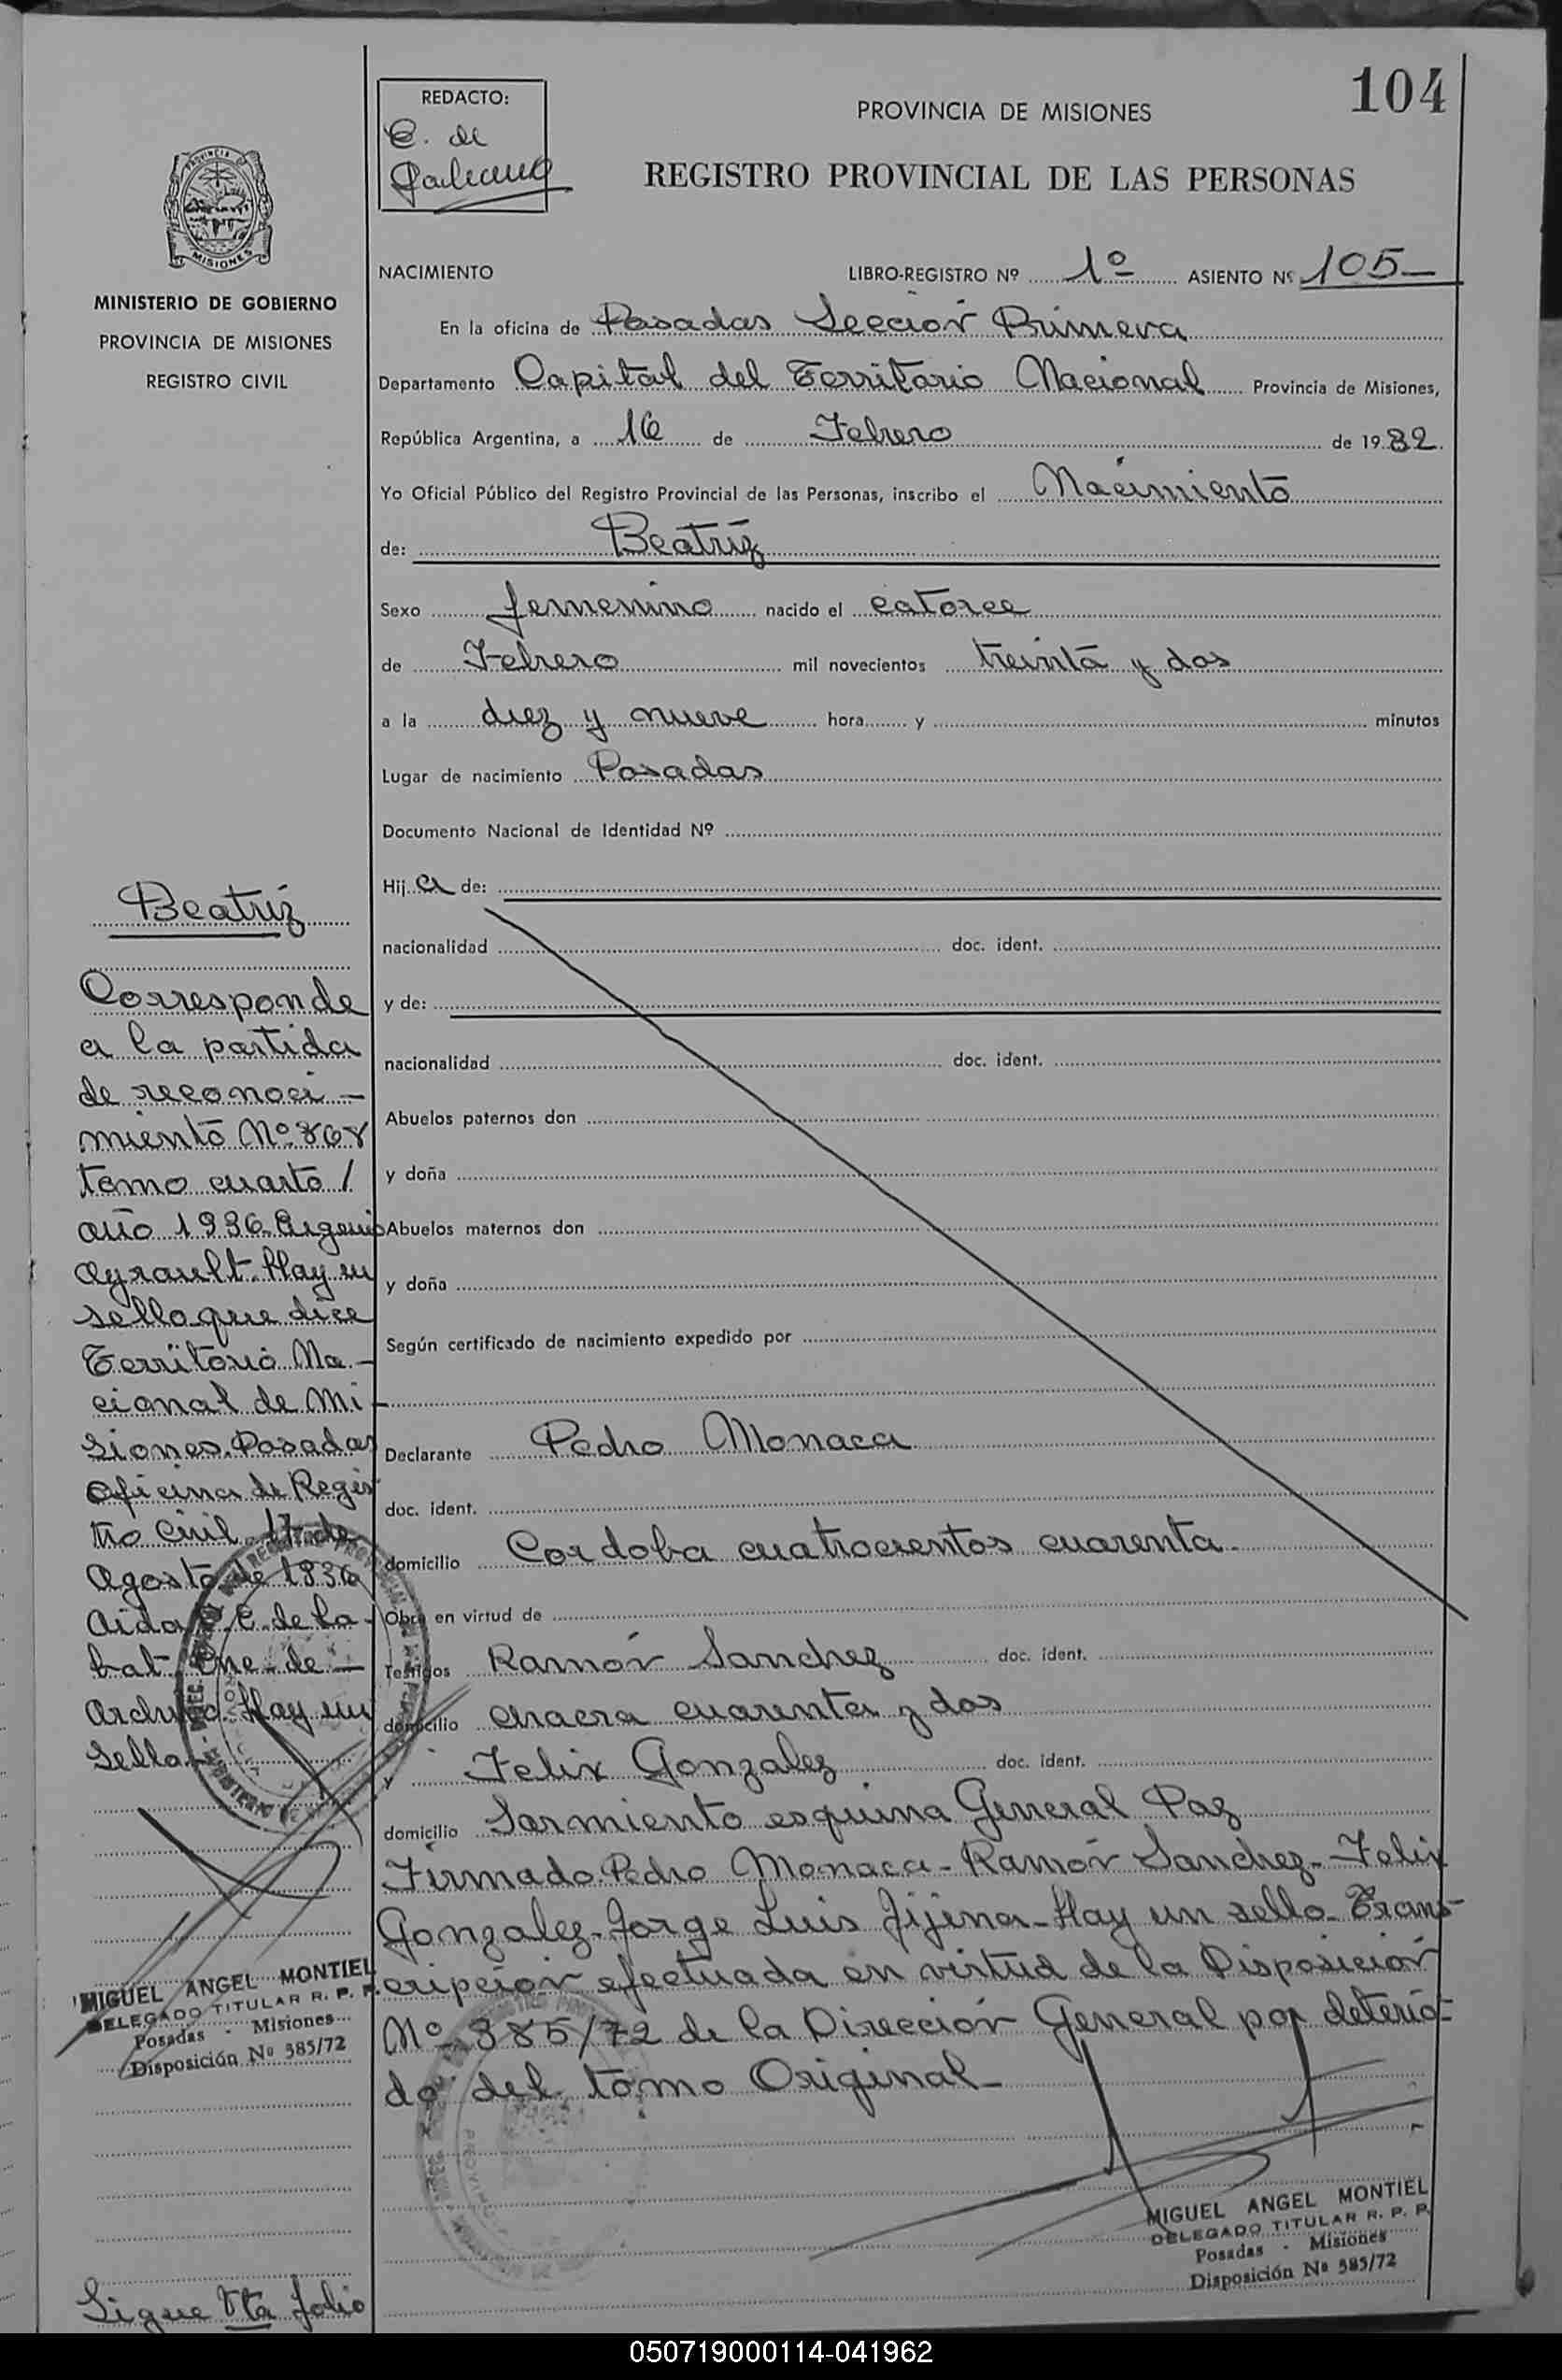 104
REDACTO:
C. de
PROVINCIA DE MISIONES
REGISTRO PROVINCIAL DE LAS PERSONAS
PROVINCIA DE
MISIONES
MINISTERIO DE GOBIERNO
PROVINCIA DE MISIONES
REGISTRO CIVIL
NACIMIENTO LIBRO-REGISTRO Nº 1º ASIENTO Nº 105-
En la oficina de Posadas Sección Primera
Departamento Capital del Territorio Nacional Provincia de Misiones,
República Argentina, a 16 de Febrero de 1932.
Yo Oficial Público del Registro Provincial de las Personas, inscribo el Nacimiento
de: Beatríz
Sexo femenino nacido el catorce
de Febrero mil novecientos treinta y dos
a la diez y nueve hora y minutos
Lugar de nacimiento Posadas
Documento Nacional de Identidad Nº
Hij a de:
nacionalidad doc. ident.
y de:
nacionalidad doc. ident.
Abuelos paternos don
y doña
Abuelos maternos don
y doña
Según certificado de nacimiento expedido por
Declarante Pedro Monaca
doc. ident.
domicilio Cordoba cuatrocientos cuarenta
Obra en virtud de
Testigos Ramón Sanchez doc. ident.
domicilio chacra cuarenta y dos
y Felix Gonzalez doc. ident.
domicilio Sarmiento esquina General Paz
Firmado. Pedro Monaca- Ramón Sanchez- Felix
Gonzalez- Jorge Luis Jijena- Hay un sello- Trans-
cripción efectuada en virtud de la Disposición
Nº 385/72 de la Dirección General por deterio-
do del tomo Original-
MIGUEL ANGEL MONTIEL
DELEGADO TITULAR R. P. P.
Posadas - Misiones
Disposición Nº 385/72
Beatríz
Corresponde
a la partida
de reconoci-
miento Nº 868
tomo cuarto /
año 1936. Argenio
Ayrault. Hay un
sello que dice
Territorio Na-
cional de Mi-
siones. Posadas
Oficina de Regis
tro Civil. 17 de
Agosto de 1936
Aida C. de La-
bat Ene. de-
Archivo. Hay un
Sello-
MIGUEL ANGEL MONTIEL
DELEGADO TITULAR R. P. P.
Posadas - Misiones
Disposición Nº 385/72
Sigue Vta folio
050719000114-041962